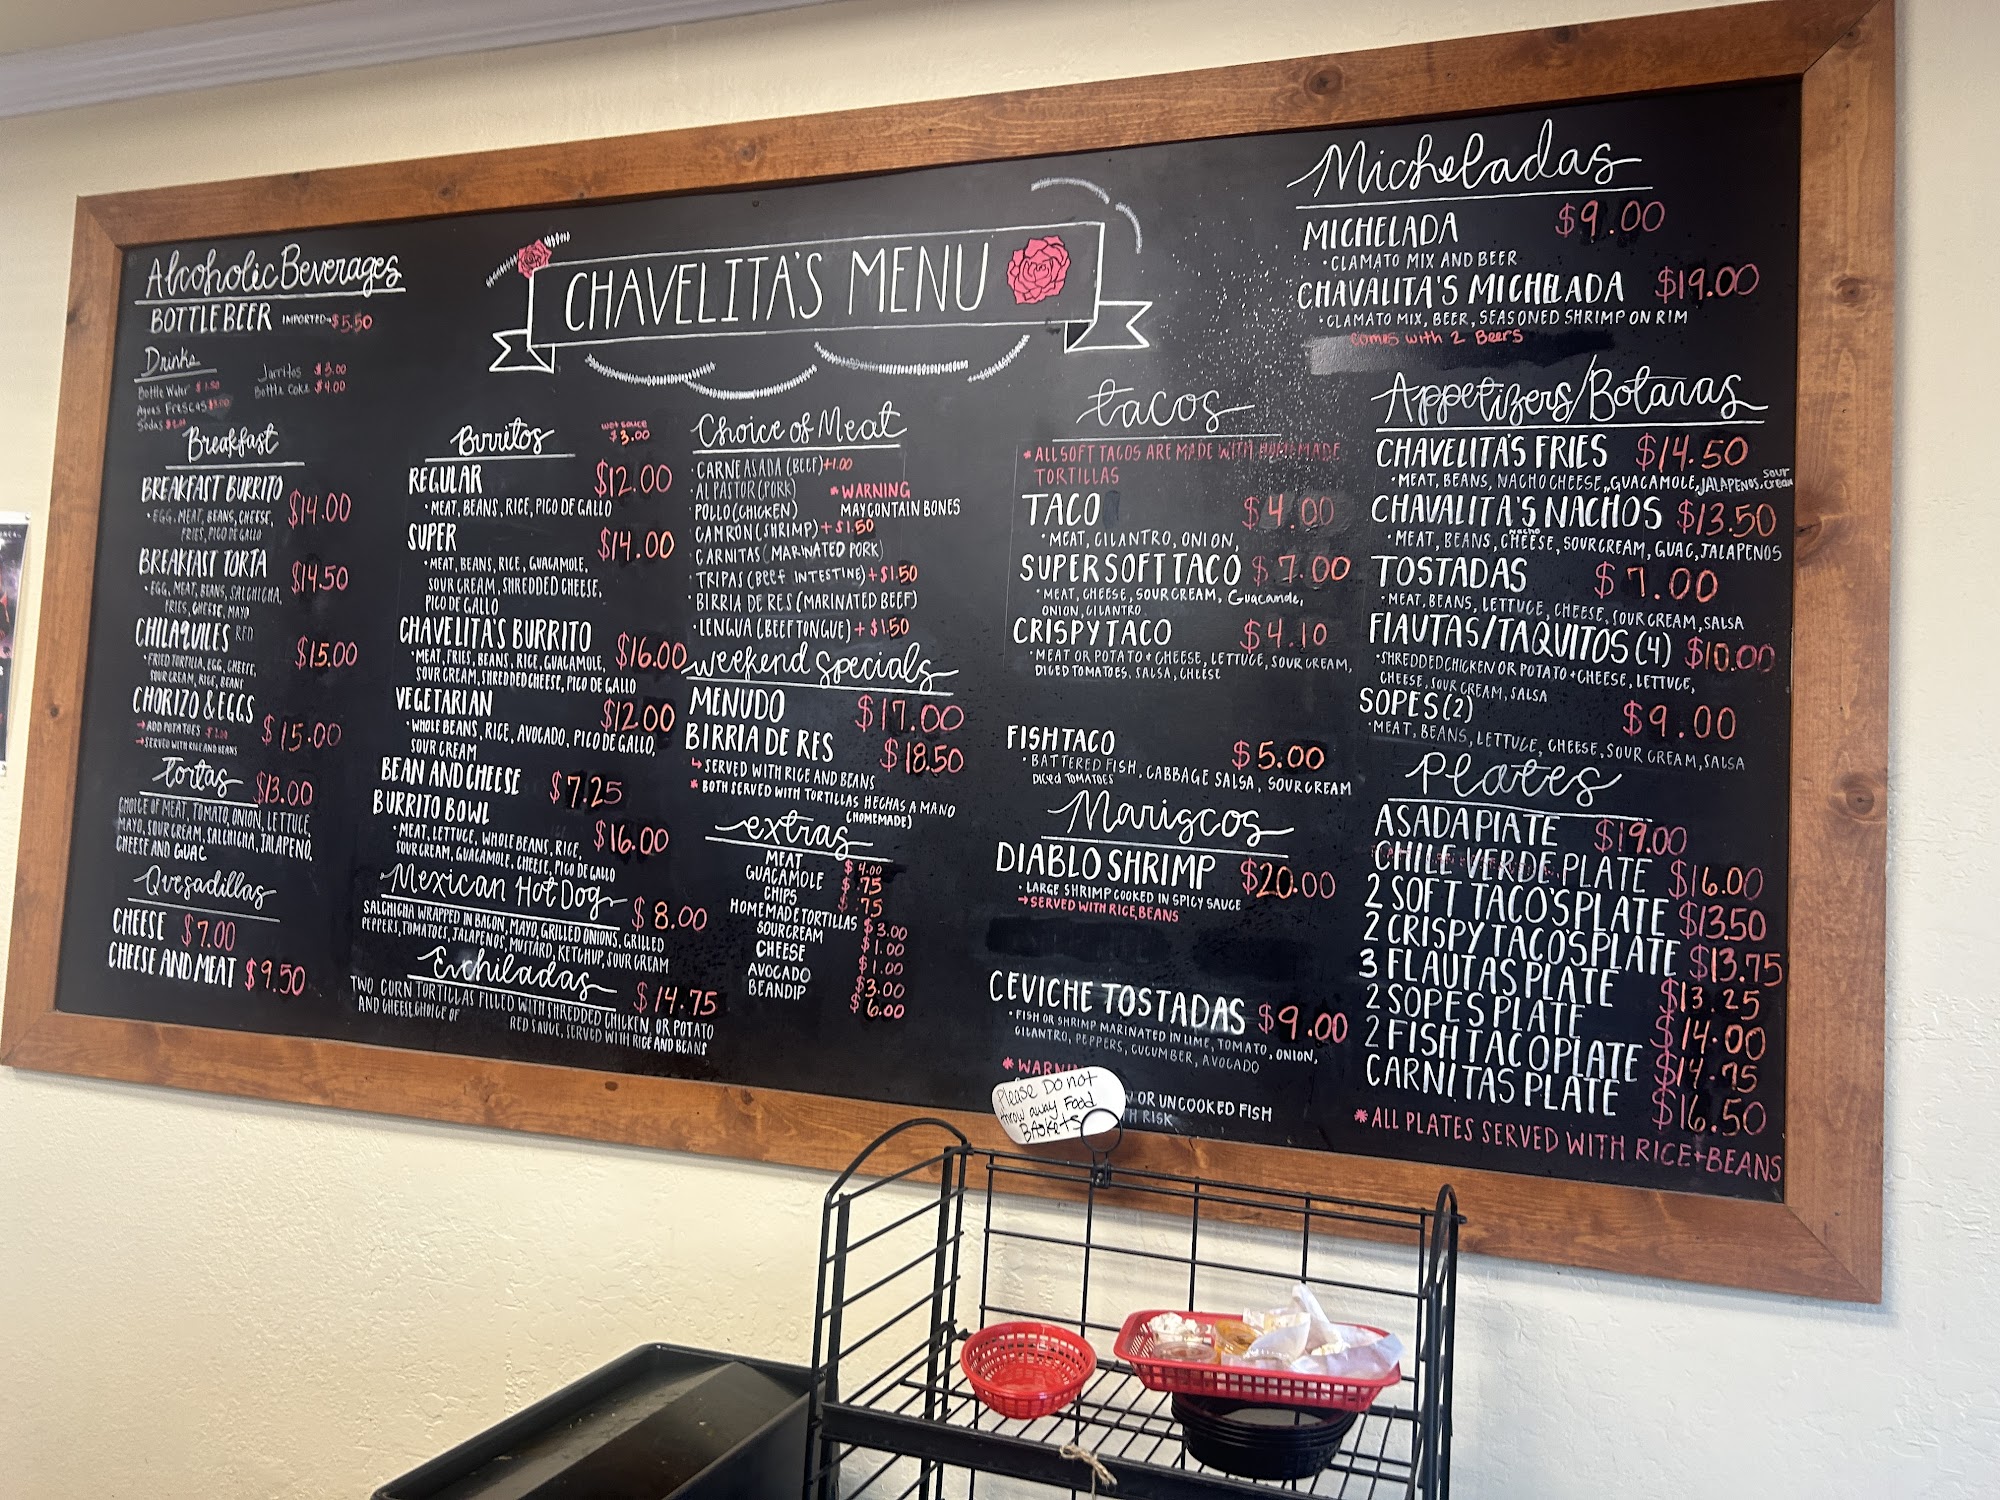 Alcoholic Beverages
BOTTLE BEER IMPORTED→$5.50
Drinks
Bottle Water $1.50
Aguas Frescas $3.00
Sodas
Jarritos $3.00
Bottle Coke $4.00
CHAVELITA'S MENU
Breakfast
BREAKFAST BURRITO $14.00
• EGG, MEAT, BEANS, CHEESE,
FRIES, PICO DE GALLO
BREAKFAST TORTA $14.50
• EGG, MEAT, BEANS, SALCHICHA,
FRIES, CHEESE, MAYO
CHILAQUILES RED $15.00
• FRIED TORTILLA, EGG, CHEESE,
SOUR CREAM, RICE, BEANS
CHORIZO & EGGS $15.00
→ ADD POTATOES
→ SERVED WITH RICE AND BEANS
Tortas $13.00
CHOICE OF MEAT, TOMATO, ONION, LETTUCE,
MAYO, SOUR CREAM, SALCHICHA, JALAPENO,
CHEESE AND GUAC
Quesadillas
CHEESE $7.00
CHEESE AND MEAT $9.50
Burritos
wet sauce
$3.00
REGULAR $12.00
• MEAT, BEANS, RICE, PICO DE GALLO
SUPER $14.00
• MEAT, BEANS, RICE, GUACAMOLE,
SOUR CREAM, SHREDDED CHEESE,
PICO DE GALLO
CHAVELITA'S BURRITO $16.00
• MEAT, FRIES, BEANS, RICE, GUACAMOLE,
SOUR CREAM, SHREDDED CHEESE, PICO DE GALLO
VEGETARIAN $12.00
• WHOLE BEANS, RICE, AVOCADO, PICO DE GALLO,
SOUR CREAM
BEAN AND CHEESE $7.25
BURRITO BOWL $16.00
• MEAT, LETTUCE, WHOLE BEANS, RICE,
SOUR CREAM, GUACAMOLE, CHEESE, PICO DE GALLO
Mexican Hot Dog $8.00
SALCHICHA WRAPPED IN BACON, MAYO, GRILLED ONIONS, GRILLED
PEPPERS, TOMATOES, JALAPENOS, MUSTARD, KETCHUP, SOUR CREAM
Enchiladas $14.75
TWO CORN TORTILLAS FILLED WITH SHREDDED CHICKEN OR POTATO
AND CHEESE CHOICE OF RED SAUCE, SERVED WITH RICE AND BEANS
Choice of Meat
• CARNE ASADA (BEEF) +1.00
• AL PASTOR (PORK)
• POLLO (CHICKEN)
• CAMRON (SHRIMP) + $1.50
• CARNITAS (MARINATED PORK)
• TRIPAS (BEEF INTESTINE) + $1.50
• BIRRIA DE RES (MARINATED BEEF)
• LENGUA (BEEF TONGUE) + $1.50
* WARNING
MAY CONTAIN BONES
Weekend Specials
MENUDO $17.00
BIRRIA DE RES $18.50
↳ SERVED WITH RICE AND BEANS
* BOTH SERVED WITH TORTILLAS HECHAS A MANO
(HOMEMADE)
extras
MEAT $4.00
GUACAMOLE $.75
CHIPS $.75
HOMEMADE TORTILLAS $3.00
SOUR CREAM $1.00
CHEESE $1.00
AVOCADO $3.00
BEAN DIP $6.00
tacos
* ALL SOFT TACOS ARE MADE WITH HOMEMADE
TORTILLAS
TACO $4.00
• MEAT, CILANTRO, ONION,
SUPER SOFT TACO $7.00
• MEAT, CHEESE, SOUR CREAM, Guacamole,
ONION, CILANTRO
CRISPY TACO $4.10
• MEAT OR POTATO + CHEESE, LETTUCE, SOUR CREAM,
DICED TOMATOES, SALSA, CHEESE
FISH TACO $5.00
• BATTERED FISH, CABBAGE SALSA, SOUR CREAM
DICED TOMATOES
Mariscos
DIABLO SHRIMP $20.00
• LARGE SHRIMP COOKED IN SPICY SAUCE
→ SERVED WITH RICE, BEANS
CEVICHE TOSTADAS $9.00
• FISH OR SHRIMP MARINATED IN LIME, TOMATO, ONION,
CILANTRO, PEPPERS, CUCUMBER, AVOCADO
* WARNI
OR UNCOOKED FISH
RISK
Please Do not
throw away Food
BASKETS
Micheladas
MICHELADA $9.00
• CLAMATO MIX AND BEER
CHAVALITA'S MICHELADA $19.00
• CLAMATO MIX, BEER, SEASONED SHRIMP ON RIM
comes with 2 Beers
Appetizers/Botanas
CHAVELITA'S FRIES $14.50
• MEAT, BEANS, NACHO CHEESE, GUACAMOLE, JALAPENOS, sour cream
CHAVALITA'S NACHOS $13.50
• MEAT, BEANS, nacho CHEESE, SOUR CREAM, GUAC, JALAPENOS
TOSTADAS $7.00
• MEAT, BEANS, LETTUCE, CHEESE, SOUR CREAM, SALSA
FLAUTAS/TAQUITOS (4) $10.00
• SHREDDED CHICKEN OR POTATO + CHEESE, LETTUCE,
CHEESE, SOUR CREAM, SALSA
SOPES (2) $9.00
• MEAT, BEANS, LETTUCE, CHEESE, SOUR CREAM, SALSA
Plates
ASADA PLATE $19.00
CHILE VERDE PLATE $16.00
2 SOFT TACO'S PLATE $13.50
2 CRISPY TACO'S PLATE $13.75
3 FLAUTAS PLATE $13.25
2 SOPES PLATE $14.00
2 FISH TACO PLATE $14.75
CARNITAS PLATE $16.50
* ALL PLATES SERVED WITH RICE + BEANS